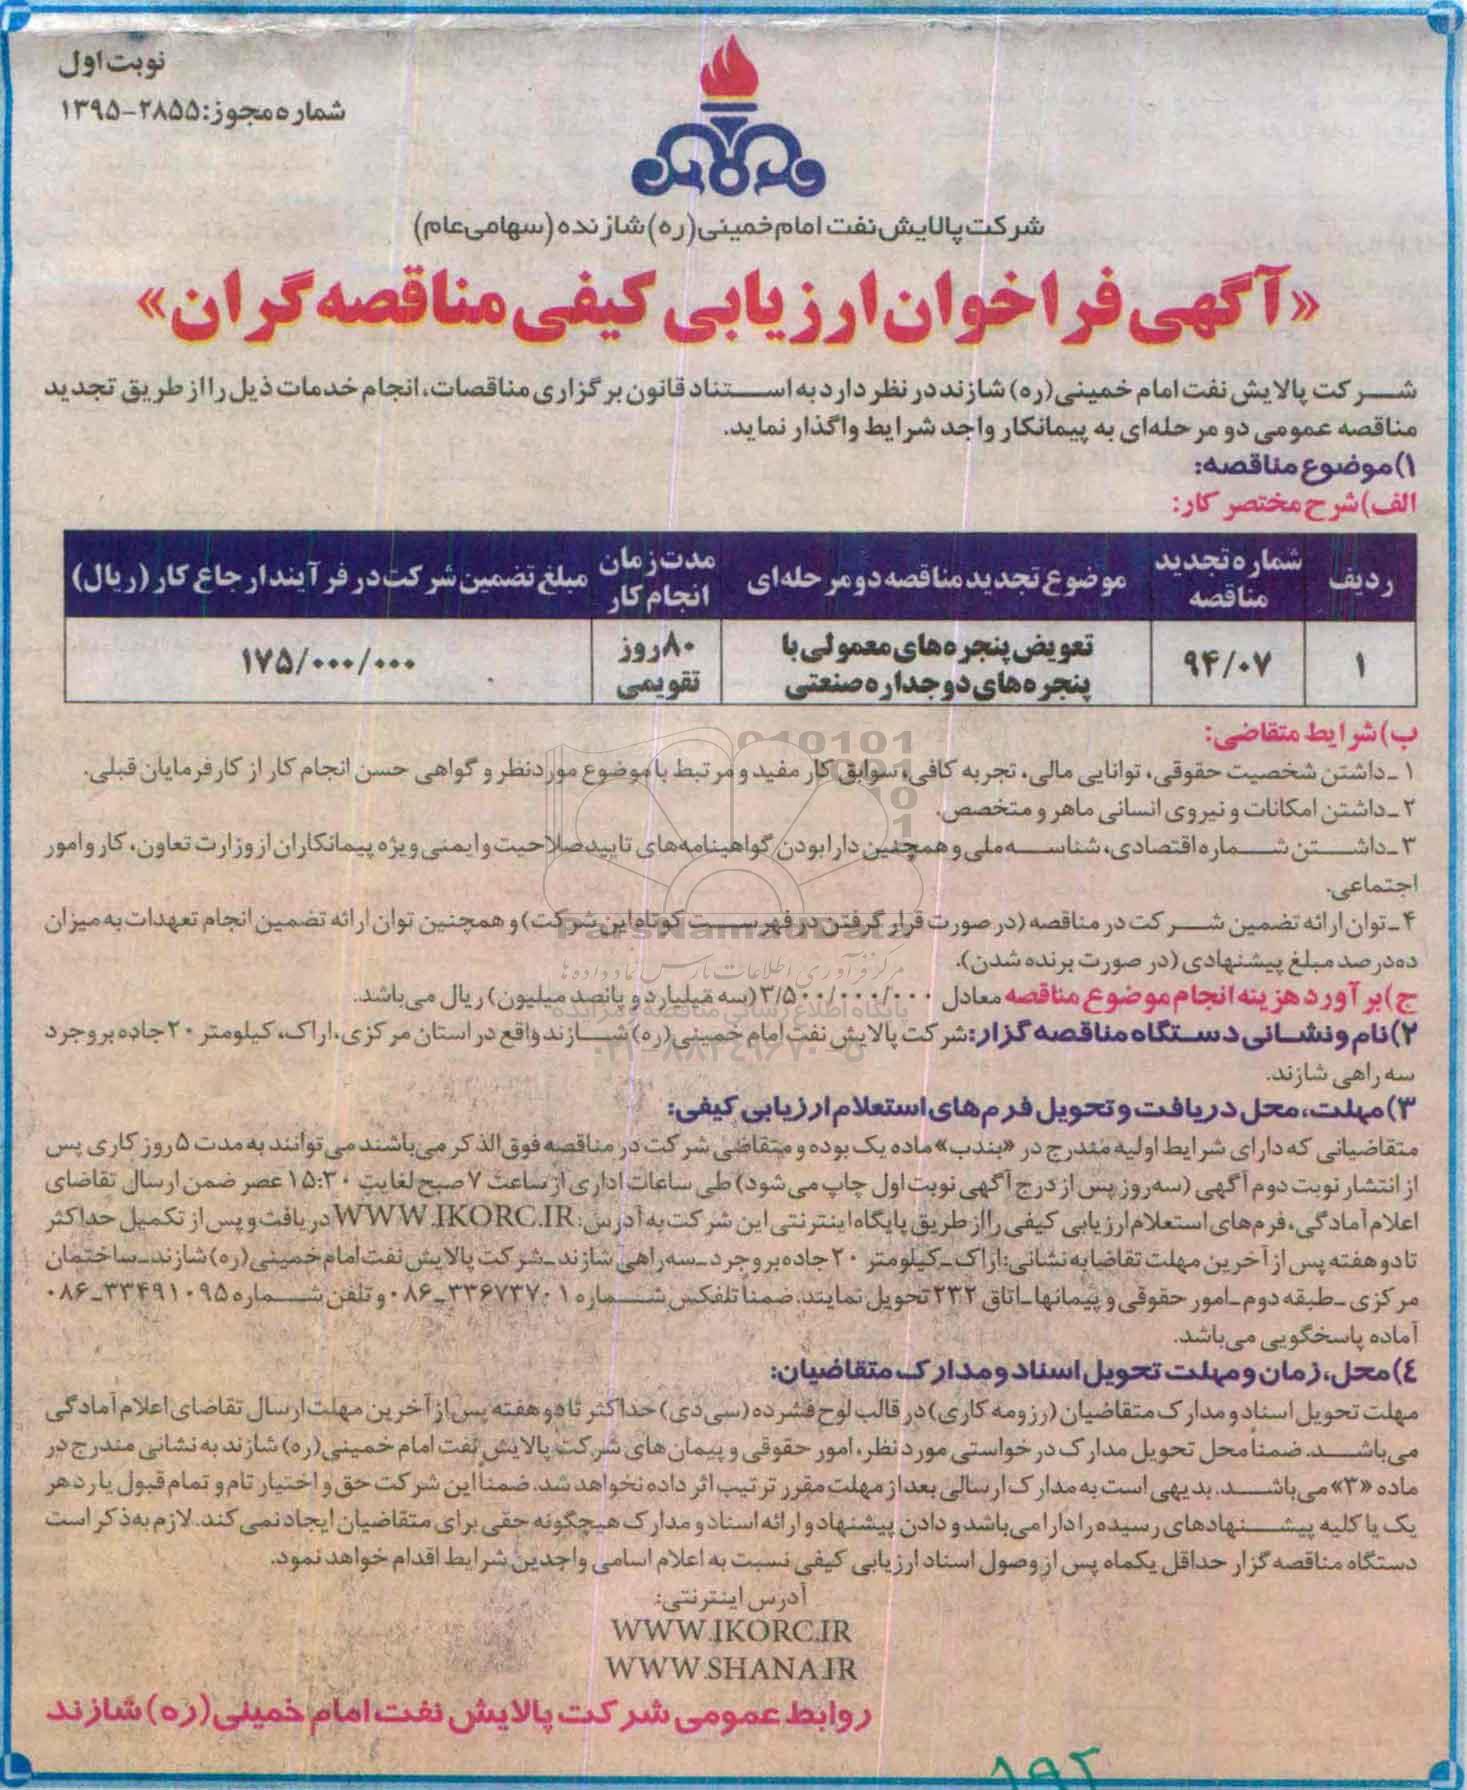 نوبت اول
شماره مجوز: ۲۸۵۵-۱۳۹۵
شرکت پالایش نفت امام خمینی (ره) شازند ه (سهامی عام)
«آگهی فراخوان ارزیابی کیفی مناقصه گران»
شرکت پالایش نفت امام خمینی (ره) شازند در نظر دارد به استناد قانون برگزاری مناقصات، انجام خدمات ذیل را از طریق تجدید
مناقصه عمومی دو مرحله‌ای به پیمانکار واجد شرایط واگذار نماید.
۱) موضوع مناقصه:
الف) شرح مختصر کار:
ردیف شماره تجدید مناقصه موضوع تجدید مناقصه دو مرحله‌ای مدت زمان انجام کار مبلغ تضمین شرکت در فرآیند ارجاع کار (ریال)
۱ ۹۴/۰۷ تعویض پنجره‌های معمولی با پنجره‌های دو جداره صنعتی ۸۰ روز تقویمی ۱۷۵/۰۰۰/۰۰۰
ب) شرایط متقاضی:
۱ـ داشتن شخصیت حقوقی، توانایی مالی، تجربه کافی، سوابق کار مفید و مرتبط با موضوع مورد نظر و گواهی حسن انجام کار از کارفرمایان قبلی.
۲ـ داشتن امکانات و نیروی انسانی ماهر و متخصص.
۳ـ داشتن شماره اقتصادی، شناسه ملی و همچنین دارا بودن گواهینامه‌های تایید صلاحیت و ایمنی ویژه پیمانکاران از وزارت تعاون، کار و امور
اجتماعی.
۴ـ توان ارائه تضمین شرکت در مناقصه (در صورت قرار گرفتن در فهرست کوتاه این شرکت) و همچنین توان ارائه تضمین انجام تعهدات به میزان
ده درصد مبلغ پیشنهادی (در صورت برنده شدن).
ج) برآورد هزینه انجام موضوع مناقصه معادل ۳/۵۰۰/۰۰۰/۰۰۰ (سه میلیارد و پانصد میلیون) ریال می‌باشد.
۲) نام و نشانی دستگاه مناقصه گزار: شرکت پالایش نفت امام خمینی (ره) شازند واقع در استان مرکزی، اراک، کیلومتر ۲۰ جاده بروجرد
سه راهی شازند.
۳) مهلت، محل دریافت و تحویل فرم‌های استعلام ارزیابی کیفی:
متقاضیانی که دارای شرایط اولیه مندرج در «بند ب» ماده یک بوده و متقاضی شرکت در مناقصه فوق الذکر می‌باشند می‌توانند به مدت ۵ روز کاری پس
از انتشار نوبت دوم آگهی (سه روز پس از درج آگهی نوبت اول چاپ می شود) طی ساعات اداری از ساعت ۷ صبح لغایت ۱۵:۳۰ عصر ضمن ارسال تقاضای
اعلام آمادگی، فرم‌های استعلام ارزیابی کیفی را از طریق پایگاه اینترنتی این شرکت به آدرس: WWW.IKORC.IR دریافت و پس از تکمیل حداکثر
تا دو هفته پس از آخرین مهلت تقاضا به نشانی: اراک ـ کیلومتر ۲۰ جاده بروجرد ـ سه راهی شازند ـ شرکت پالایش نفت امام خمینی (ره) شازند ـ ساختمان
مرکزی ـ طبقه دوم ـ امور حقوقی و پیمانها ـ اتاق ۲۳۲ تحویل نمایند. ضمنا تلفکس شماره ۳۳۶۷۳۷۰۱ـ۰۸۶ و تلفن شماره ۳۳۴۹۱۰۹۵ـ۰۸۶
آماده پاسخگویی می‌باشد.
۴) محل، زمان و مهلت تحویل اسناد و مدارک متقاضیان:
مهلت تحویل اسناد و مدارک متقاضیان (رزومه کاری) در قالب لوح فشرده (سی دی) حداکثر تا دو هفته پس از آخرین مهلت ارسال تقاضای اعلام آمادگی
می‌باشد. ضمناً محل تحویل مدارک درخواستی مورد نظر، امور حقوقی و پیمان های شرکت پالایش نفت امام خمینی (ره) شازند به نشانی مندرج در
ماده «۳» می‌باشد. بدیهی است به مدارک ارسالی بعد از مهلت مقرر ترتیب اثر داده نخواهد شد. ضمناً این شرکت حق و اختیار تام و تمام قبول یا رد هر
یک یا کلیه پیشنهادهای رسیده را دارا می‌باشد و دادن پیشنهاد و ارائه اسناد و مدارک هیچگونه حقی برای متقاضیان ایجاد نمی کند. لازم به ذکر است
دستگاه مناقصه گزار حداقل یکماه پس از وصول اسناد ارزیابی کیفی نسبت به اعلام اسامی واجدین شرایط اقدام خواهد نمود.
آدرس اینترنتی:
WWW.IKORC.IR
WWW.SHANA.IR
روابط عمومی شرکت پالایش نفت امام خمینی (ره) شازند
۱۹۲